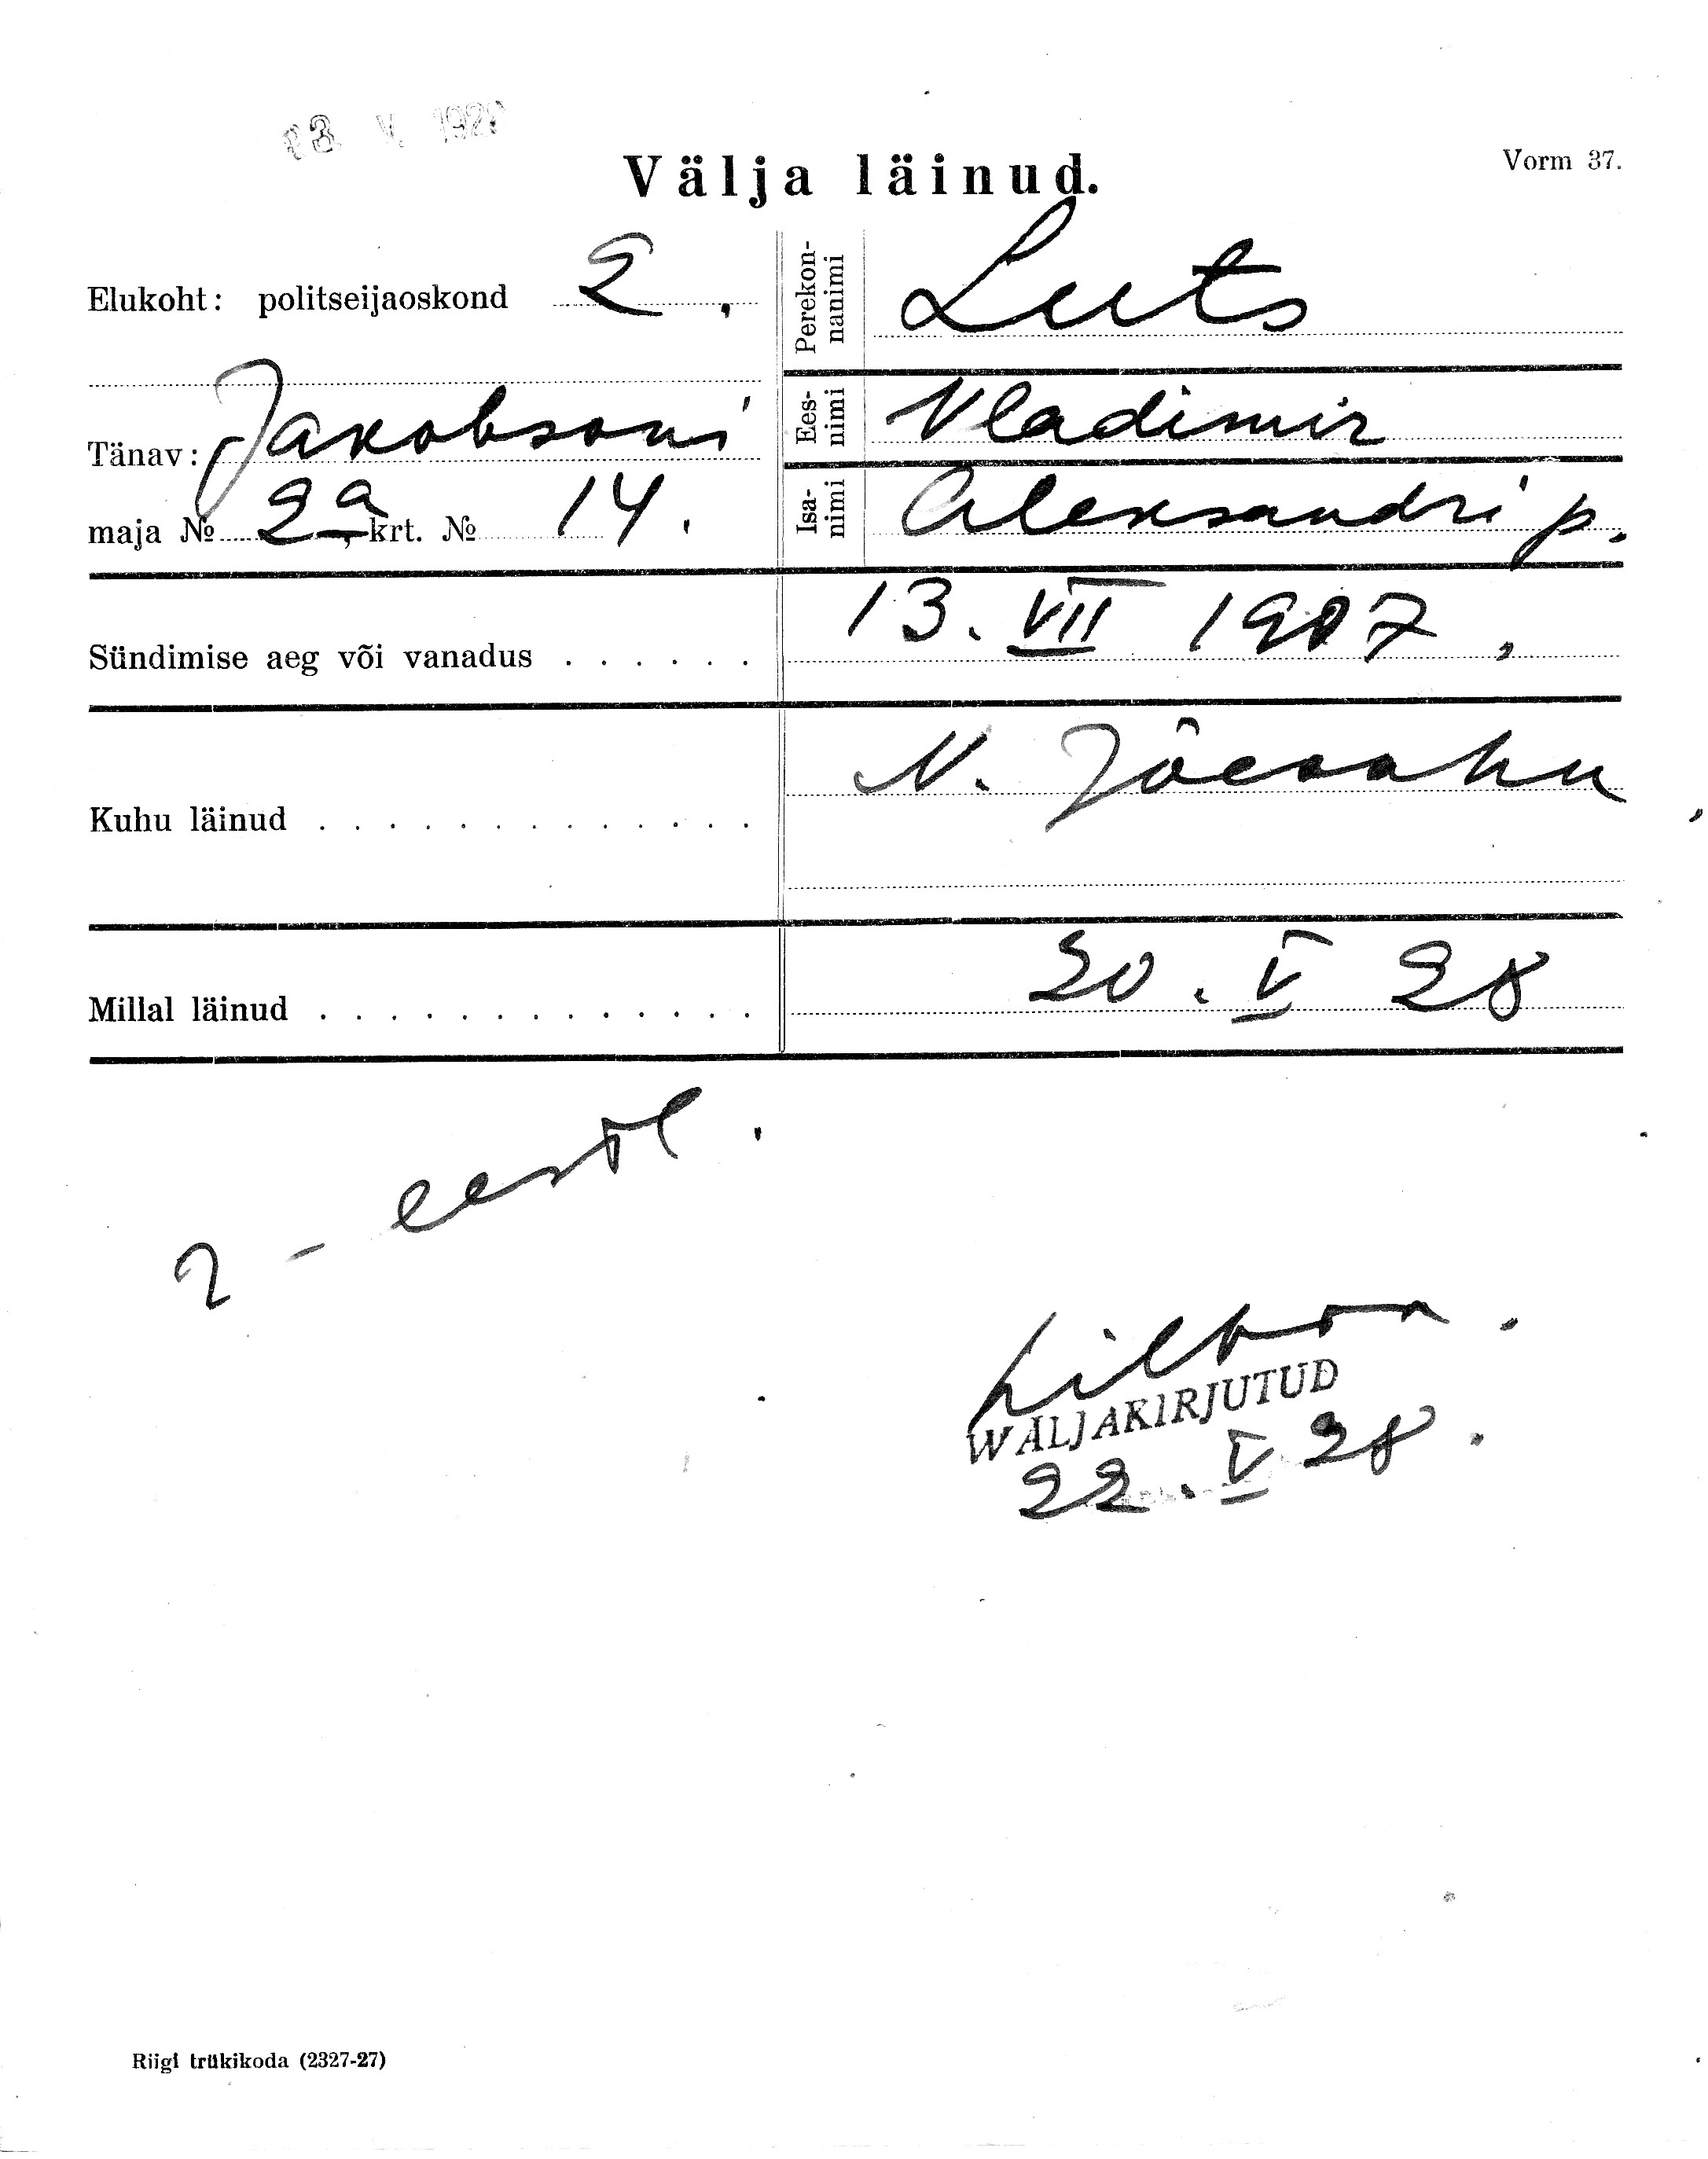 Vorm 37.
Välja läinud.
Elukoht: politseijaoskond 2.
Tänav: Jakobsoni
maja № 2a, krt. № 14.
Perekonnanimi Luts
Eesnimi Vladimir
Isanimi Aleksandri p.
Sündimise aeg või vanadus . . . . . . 13. VII 1907.
Kuhu läinud . . . . . . . . . . . . . N. Jõesuhu,
Millal läinud . . . . . . . . . . . . . 20. V 28
WÄLJAKIRJUTUD
22. V 28.
Riigi trükikoda (2327-27)